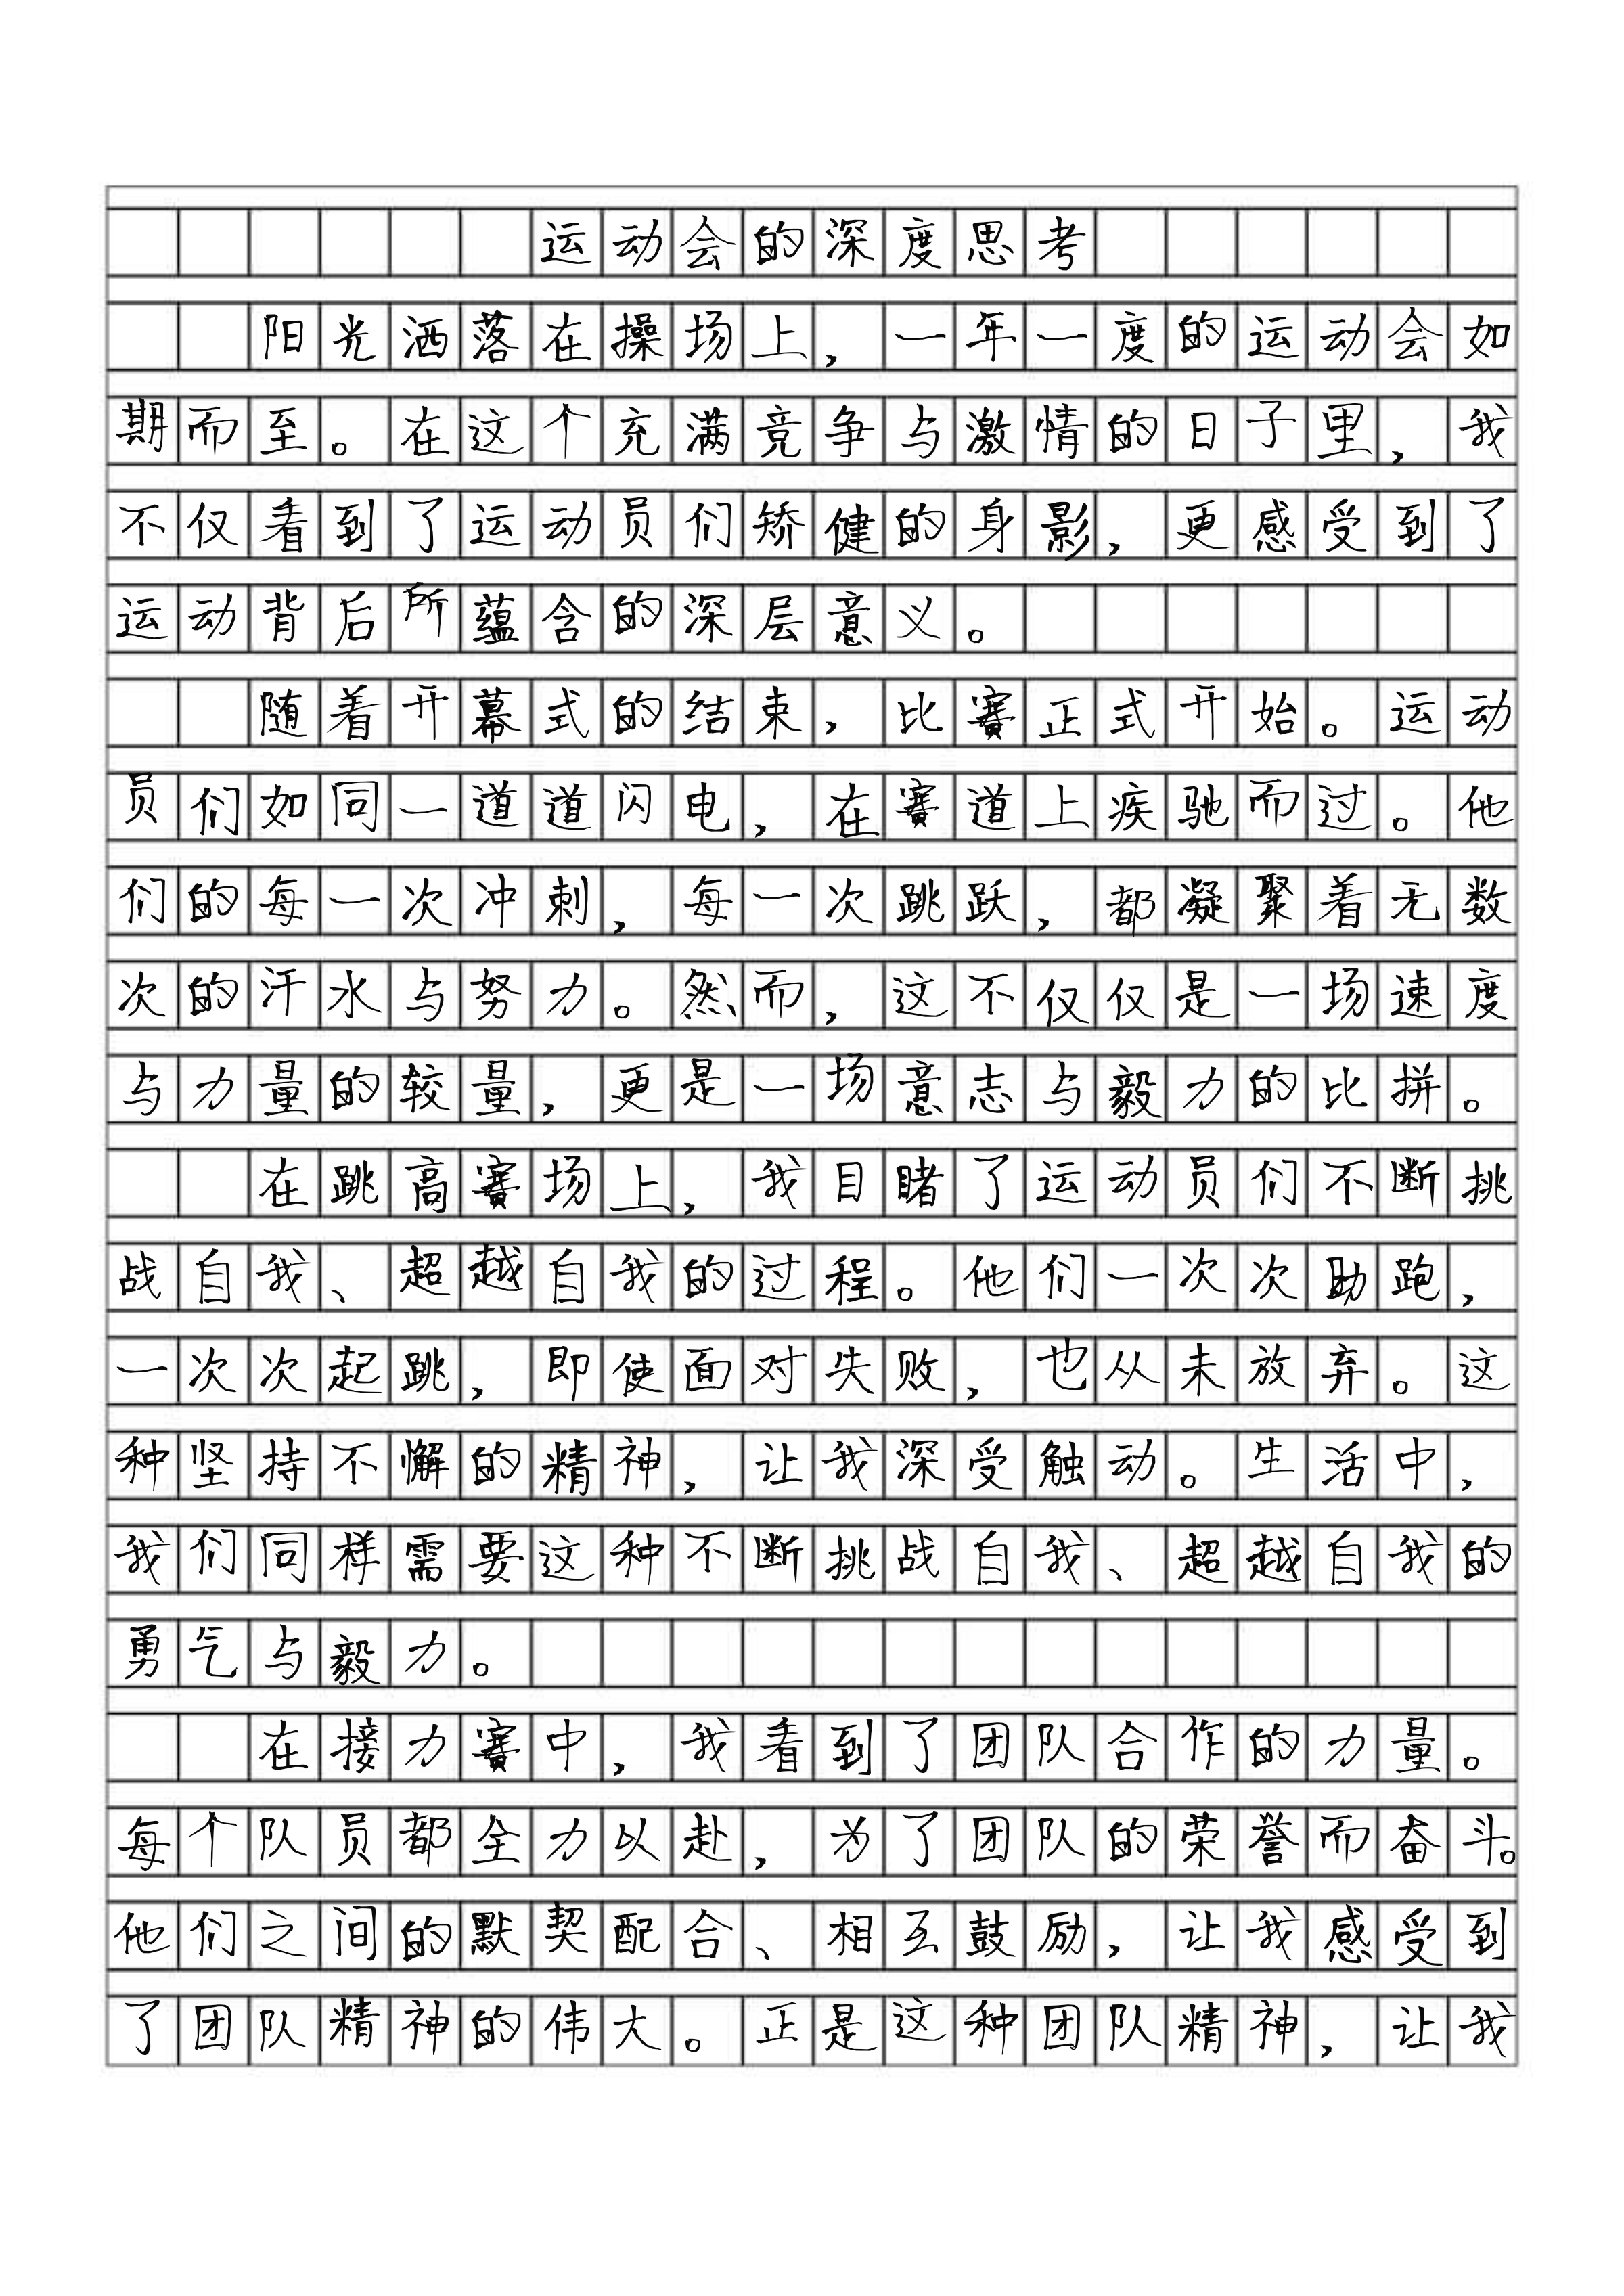 运动会的深度思考
阳光洒落在操场上，一年一度的运动会如
期而至。在这个充满竞争与激情的日子里，我
不仅看到了运动员们矫健的身影，更感受到了
运动背后所蕴含的深层意义。
随着开幕式的结束，比赛正式开始。运动
员们如同一道道闪电，在赛道上疾驰而过。他
们的每一次冲刺，每一次跳跃，都凝聚着无数
次的汗水与努力。然而，这不仅仅是一场速度
与力量的较量，更是一场意志与毅力的比拼。
在跳高赛场上，我目睹了运动员们不断挑
战自我、超越自我的过程。他们一次次助跑，
一次次起跳，即使面对失败，也从未放弃。这
种坚持不懈的精神，让我深受触动。生活中，
我们同样需要这种不断挑战自我、超越自我的
勇气与毅力。
在接力赛中，我看到了团队合作的力量。
每个队员都全力以赴，为了团队的荣誉而奋斗。
他们之间的默契配合、相互鼓励，让我感受到
了团队精神的伟大。正是这种团队精神，让我